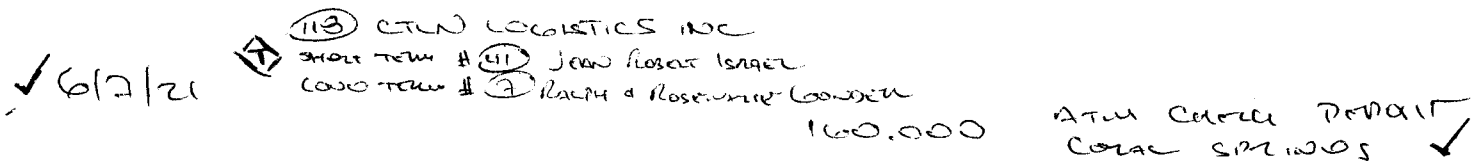 113 CTLN LOGISTICS INC
✓ 6/7/21 SHORT TERM # 41 JEAN ROBERT ISRAEL
LONG TERM # 7 RALPH & ROSEMARIE
160.000 ATM CHECK DEPOSIT
CORAL SPRINGS ✓